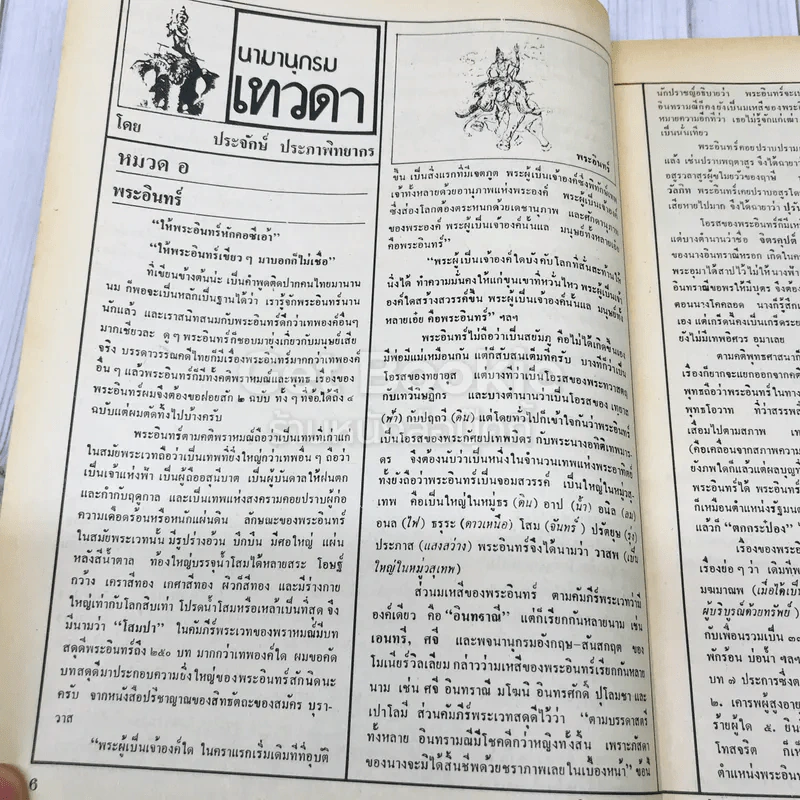 นามานุกรม
เทวดา
โดย
ประจักษ์ ประภาพิทยากร
หมวด อ
พระอินทร์
“ให้พระอินทร์หักคอซีเอ้า”
“ให้พระอินทร์เขียว ๆ มาบอกก็ไม่เชื่อ”
ที่เขียนข้างต้นน่ะ เป็นคำพูดติดปากคนไทยมานาน
นม ก็พอจะเป็นหลักเป็นฐานได้ว่า เรารู้จักพระอินทร์นาน
นักแล้ว และเราสนิทสนมกับพระอินทร์ดีกว่าเทพองค์อื่นๆ
มากเชียวละ ดู ๆ พระอินทร์ก็ชอบมายุ่งเกี่ยวกับมนุษย์เสีย
จริง บรรดาวรรณคดีไทยก็มีเรื่องพระอินทร์มากกว่าเทพองค์
อื่น ๆ แล้วพระอินทร์ก็มีทั้งคติพราหมณ์และพุทธ เรื่องของ
พระอินทร์ผมจึงต้องขอฝอยสัก ๒ ฉบับ ทั้งๆ ที่จ้อได้ถึง ๔
ฉบับแต่ผมตัดทิ้งไปบ้างครับ
พระอินทร์ตามคติพราหมณ์ถือว่าเป็นเทพที่เก่าแก่
ในสมัยพระเวทถือว่าเป็นเทพที่ยิ่งใหญ่กว่าเทพอื่น ๆ ถือว่า
เป็นเจ้าแห่งฟ้า เป็นผู้ถืออสนีบาต เป็นผู้บันดาลให้ฝนตก
และกำกับฤดูกาล และเป็นเทพแห่งสงครามคอยปราบผู้ก่อ
ความเดือดร้อนหรือหนักแผ่นดิน ลักษณะของพระอินทร์
ในสมัยพระเวทนั้น มีรูปร่างอ้วน บึกบึน มีศอใหญ่ แผ่น
หลังสีน้ำตาล ท้องใหญ่บรรจุน้ำโสมได้หลายสระ โอษฐ์
กว้าง เคราสีทอง เกศาสีทอง ผิวก็สีทอง และมีร่างกาย
ใหญ่เท่ากับโลกสิบเท่า โปรดน้ำโสมหรือเหล้าเป็นที่สุด จึง
มีนามว่า “โสมปา” ในคัมภีร์พระเวทของพราหมณ์มีบท
สดุดีพระอินทร์ถึง ๒๕๐ บท มากกว่าเทพองค์ใด ผมขอคัด
บทสดุดีมาประกอบความยิ่งใหญ่ของพระอินทร์สักนิดนะ
ครับ จากหนังสือปรัชญาณของสิทธัตถะของสมัคร บุรา-
วาส
“พระผู้เป็นเจ้าองค์ใด ในคราแรกเริ่มเดิมที่ที่อุบัติ
6
พระอินทร์
ขึ้น เป็นสิ่งแรกที่มีเจตภูต พระผู้เป็นเจ้าองค์ซึ่งพิทักษ์เทพ
เจ้าทั้งหลายด้วยอานุภาพแห่งพระองค์ พระผู้เป็นเจ้าองค์
ซึ่งส่องโลกต้องตระหนกด้วยเดชานุภาพ และศักดานุภาพ
ของพระองค์ พระผู้เป็นเจ้าองค์นั้นแล มนุษย์ทั้งหลายเอ๋ย
คือพระอินทร์”
“พระผู้เป็นเจ้าองค์ใดบังคับโลกที่สั่นสะท้านให้
นิ่งได้ ทำความมั่นคงให้แก่ขุนเขาที่หวั่นไหว พระผู้เป็นเจ้า
องค์ใดสร้างสวรรค์ขึ้น พระผู้เป็นเจ้าองค์นั้นแล มนุษย์ทั้ง
หลายเอ๋ย คือพระอินทร์” ฯลฯ
พระอินทร์ไม่ถือว่าเป็นสยัมภู คือไม่ได้เกิดขึ้นเอง
มีพ่อมีแม่เหมือนกัน แต่ก็สับสนเต็มทีครับ บางทีก็ว่าเป็น
โอรสของทยาอส แต่บางทีว่าเป็นโอรสของพระทวาสตฤ
กับเทวีนิษฏิกร และบางตำนานว่าเป็นโอรสของ เทยาส
(ฟ้า) กับปฤถวี (ดิน) แต่โดยทั่วไปก็เข้าใจกันว่าพระอินทร์
เป็นโอรสของพระกัศยปเทพบิดร กับพระนางอทิติเทพมาร-
ดร จึงต้องนับว่าเป็นหนึ่งในจำนวนเทพแห่งพระอาทิตย์
ทั้งยังถือว่าพระอินทร์เป็นจอมสวรรค์ เป็นใหญ่ในหมู่วสุ-
เทพ คือเป็นใหญ่ในหมู่ธร (ดิน) อาป (น้ำ) อนิล (ลม)
อนล (ไฟ) ธรุระ (ดาวเหนือ) โสม (จันทร์) ปรัตยุษ (รุ่ง)
ประภาส (แสงสว่าง) พระอินทร์จึงได้นามว่า วาสพ (เป็น
ใหญ่ในหมู่วสุเทพ)
ส่วนมเหสีของพระอินทร์ ตามคัมภีร์พระเวทว่ามี
องค์เดียว คือ “อินทราณี” แต่ก็เรียกกันหลายนาม เช่น
เอนทรี, ศจี และพจนานุกรมอังกฤษ-สันสกฤต ของ
โมเนียร์วิลเลียม กล่าวว่ามเหสีของพระอินทร์เรียกกันหลาย
นาม เช่น ศจี อินทราณี มโฆนี อินทรศักดิ์ ปุโลมชา และ
เปาโลมี ส่วนคัมภีร์พระเวทสดุดีไว้ว่า “ตามบรรดาสตรี
ทั้งหลาย อินทรามณีมีโชคดีกว่าหญิงทั้งสิ้น เพราะภัสดา
ของนางจะมิได้สิ้นชีพด้วยชราภาพเลยในเบื้องหน้า” ข้อนี้
นักปราชญ์อธิบายว่า พระอินทร์จะเป็
อินทรามณีก็คงยังเป็นมเหสีของพระอิ
หมายความอีกที่ว่า เธอไม่รู้จักแก่เฒ่า
เป็นนั่นเทียว
พระอินทร์คอยปราบปราม
แล้ง เช่นปราบพฤตาสูร จึงได้ฉายาว่า
อสูรวลาสูรผู้ขโมยวัวของฤาษี
วัลภิท พระอินทร์เคยปราบอสูรโดย
เสียหายไปมาก จึงได้ฉายาว่า
โอรสของพระอินทร์ก็มีเห
แต่บางตำนานว่าชื่อ จิตรคุปต์
ของนางอินทราณีหรอก เกิดในค
พระอุมาได้สาปไว้ไม่ให้นางฟ้า
อินทราณีขอพรให้มีบุตร จึงต้อง
ตอนนางโคคลอด นางก็รู้สึก
เอง แต่เกร็ดนี้คงเป็นเกร็ดระย
ยังไม่มีเทพอิศวร อุมาเลย
ตามคติพุทธศาสนาก็
เรื่องก็ยากจะแยกออกจาก
พุทธถือว่าพระอินทร์ในทาง
พุทธโอวาท ที่ว่าสรรพส
เสื่อมไปตามสภาพ
(คือเคลื่อนจากสภาพความ
ยังภพใดก็แล้วแต่ผลบุญท
พระอินทร์ได้ พระอินทร์
ก็เหมือนตำแหน่งรัฐมน
แล้วก็ “ตกกระป๋อง”
เรื่องของพระอิน
เรื่องย่อๆ ว่า เดิมทีพ
มฆมาณพ (เมื่อได้เป็
ผู้บริบูรณ์ด้วยทรัพย์)
กับเพื่อนรวมเป็น ๓๓
พักร้อน บ่อน้ำ ฯลฯ
บท ๗ ประการซึ่งต
๒. เคารพผู้สูงอาย
ร้ายผู้ใด ๕. ยิน
โทสจริต ก็เห็
ตำแหน่งพระอินทร์